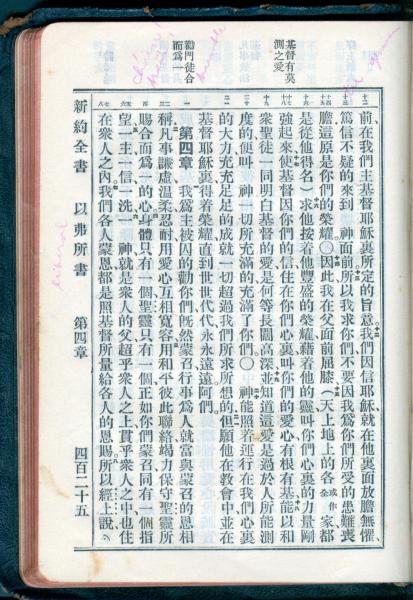 基督有莫
測之愛
勸門徒合
而爲一
前在我們主基督耶穌裏所定的旨意我們因信耶穌就在他裏面放膽無懼
篤信不疑的來到 神面前所以我求你們不要因我爲你們所受的患難喪
膽這原是你們的榮耀〇因此我在父面前屈膝(天上地上的各或作全家都
是從他得名)求他按着他豐盛的榮耀藉着他的靈叫你們心裏的力量剛
強起來使基督因你們的信住在你們心裏叫你們的愛心有根有基能以和
衆聖徒一同明白基督的愛是何等長闊高深並知道這愛是過於人所能測
度的便叫 神一切所充滿的充滿了你們〇 神能照着運行在我們心裏
的大力充充足足的成就一切超過我們所求所想的但願他在教會中並在
基督耶穌裏得着榮耀直到世世代代永永遠遠阿們
第四章 我爲主被囚的勸你們旣然蒙召行事爲人就當與蒙召的恩相
稱凡事謙虛溫柔忍耐用愛心互相寬容用和平彼此聯絡竭力保守聖靈所
賜合而爲一的心身體只有一個聖靈只有一個正如你們蒙召同有一個指
望一主一信一洗一 神就是衆人的父超乎衆人之上貫乎衆人之中也住
在衆人之內我們各人蒙恩都是照基督所量給各人的恩賜所以經上說
新約全書 以弗所書 第四章 四百二十五
liberal